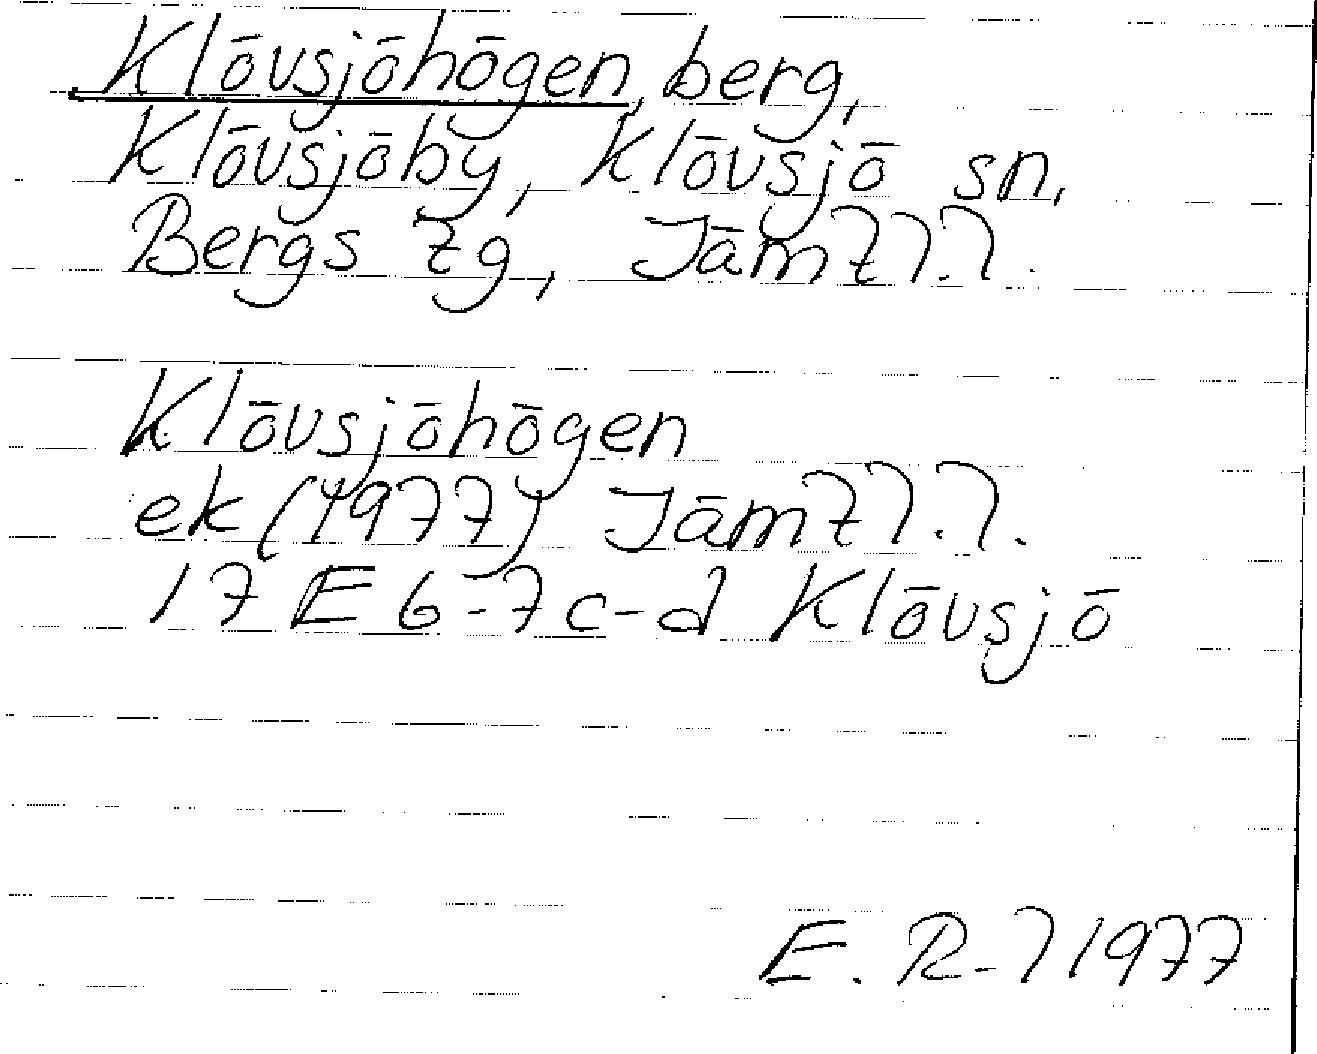 Klövsjöhögen, berg,
Klövsjöby, Klövsjö sn,
Bergs tg, Jämtl.l.
Klövsjöhögen
ek (1977) Jämtl.l.
17 E 6-7 c-d Klövsjö
E. R-l 1977